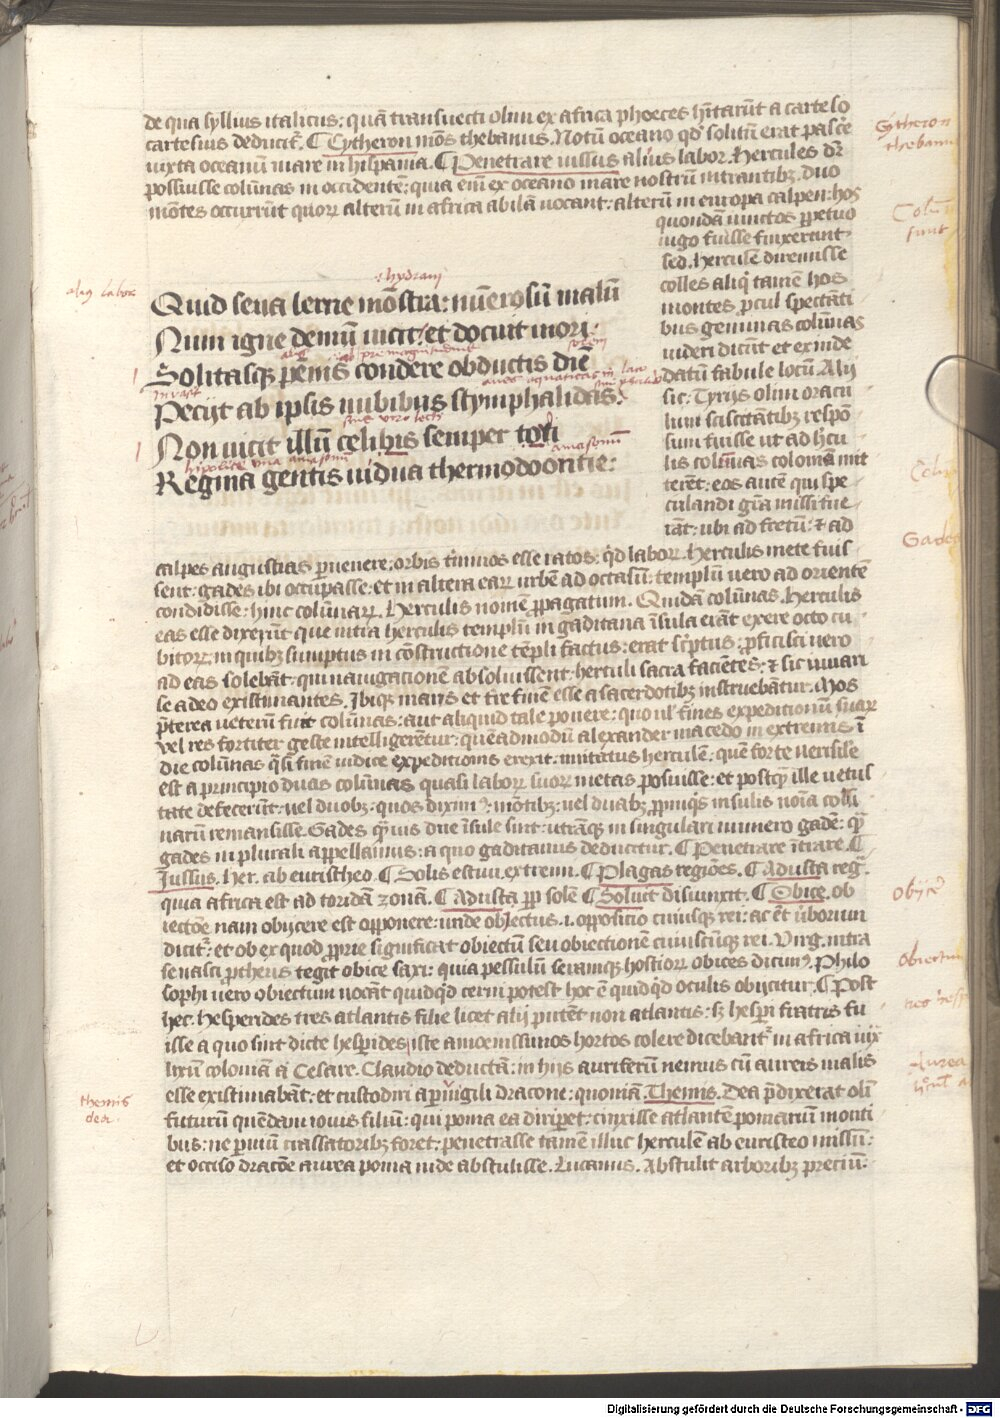 de qua syllius italicus: quā transuecti olim ex africa phoeces hītarūt a carteso
cartesius deducit². ¶ Cytheron mōs thebanus. Notū oceano qd' solitū erat pasce
iuxta oceanū mare in hispania. ¶ Penetrare iussus alius labor. Hercules dr̄
posuisse colūnas in occidente: quia em̄ ex oceano mare nostrū intrantibꝫ duo
mōtes occurrūt quoꝝ alterū in africa abilā vocant: alterū in europa calpen: hos
Cytheron
thebanus
quondā iunctos ꝑpetuo
iugo fuisse finxerunt
sed Herculē diremisse
colles aliq̄ tamē hos
montes ꝓcul spectāti
bus geminas colūnas
videri dicūt et exinde
datū fabule locū. Alij
sic: Tyrijs olim oracu
lum sciscitātibꝫ respō
sum fuisse ut ad h̄cu
lis colūnas coloniā mit
terēt: eos autē qui spe
culandi grā missi fue
rāt: ubi ad fretū: ⁊ ad
Colūn
sunt
aliꝰ labor
hydram
Quid seua lerne mōstra: nūerosū malū
Num igne demū vicit: et docuit mori:
Solitasqꝫ pēnis condere obductis diē
Petijt ab ipsis nubibus stymphalidas:
Non vicit illū celibis semper tori
amasonū
Regina gentis vidua thermodoontie:
Gades
calpes angustias ꝑuenere: orbis t̄minos esse ratos: qd laboꝝ Herculis mete fuis
sent: gades ibi occupasse: et in altera eaꝝ urbē ad occasū: templū vero ad orientē
condidisse: hinc colūnaꝝ Herculis nomē ꝓpagatum. Quidā colūnas Herculis
eas esse dixerūt que intra herculis templū in gaditana īsula erāt exere octo cu
bitoꝝ: in quibꝫ sumptus in cōstructione tēpli factus: erat sc̄ptus: ꝓficisci vero
ad eas solebāt: qui nauigationē absoluissent: herculi sacra faciētes: ⁊ sic vulgari
le adeo existimantes. Ibiqꝫ maris et t̄re finē esse a sacerdotibꝫ instruebātur. Mos
p̄terea veterū fuit colūnas: aut aliquid tale ponere: quo vl' fines expeditionū suaꝝ
vel res fortiter geste intelligerētur: quēadmodū alexander macedo in extremis ī
die colūnas q̄si finē iudice expeditionis erexit: imitatus herculē: quē forte verisile
est a principio duas colūnas quasi laboꝝ suoꝝ metas posuisse: et postqꝫ ille vetus
tate defecerūt: vel duobꝫ: quos diximꝰ: mōtibꝫ: vel duabꝫ ꝓpinq̄s insulis noīa colū
narū remansisse. Gades qꝫuis due īsule sint: utrāqꝫ in singulari numero gadē: qꝫ
gades in plurali appellamus: a quo gaditanus deducitur. ¶ Penetrare ītrare. ¶
Iussus. Her. ab euristheo. ¶ Solis estiui extremi. ¶ Plagas regiōes. ¶ Adusta regꝰ
quia africa est ad toridā zonā. ¶ Adusta ꝓp solē ¶ Soluit disiunxit. ¶ Obice. ob
iectōe nam obijcere est opponere: unde obiectus .i. oppositio cuiusqꝫ rei: ac ēt v̄borum
dicit²: et ob ex quod ꝓprie significat obiectū seu obiectionē cuiuscūqꝫ rei. Virg. intra
se nasci ꝓtheus tegit obice saxi: quia pessulū seramqꝫ hostioꝝ obices dicimꝰ. Philo
sophi vero obiectum vocāt quidqd cerni potest hoc ē quidqd oculis obijcitur. ¶ Post
hec. Hesperides tres atlantis filie licet alij putēt non atlantis: sꝫ hesp̄i fratris fu
isse a quo sint dicte hesp̄ides iste amoenissimos hortos colere dicebant² in africa iux
lixū coloniā a Cesare Claudio deductā: in hijs auriferū nemus cū aureis malis
esse existimabāt: et custodiri a ꝑuigili dracone: quoniā Themis. Dea p̄dixerat olī
futurū quēdam iouis filiū: qui poma ea diriꝑet: cīxisse atlantē pomarium monti
bus: ne ꝑuium crassatoribꝫ foret: penetrasse tamē illuc herculē ab euristeo missū:
et occiso dracōe aurea poma inde abstulisse. Lucanus. Abstulit arboribꝫ precium:
Obijcē
Obiectum
Aurea
themis
dea
Digitalisierung gefördert durch die Deutsche Forschungsgemeinschaft - DFG